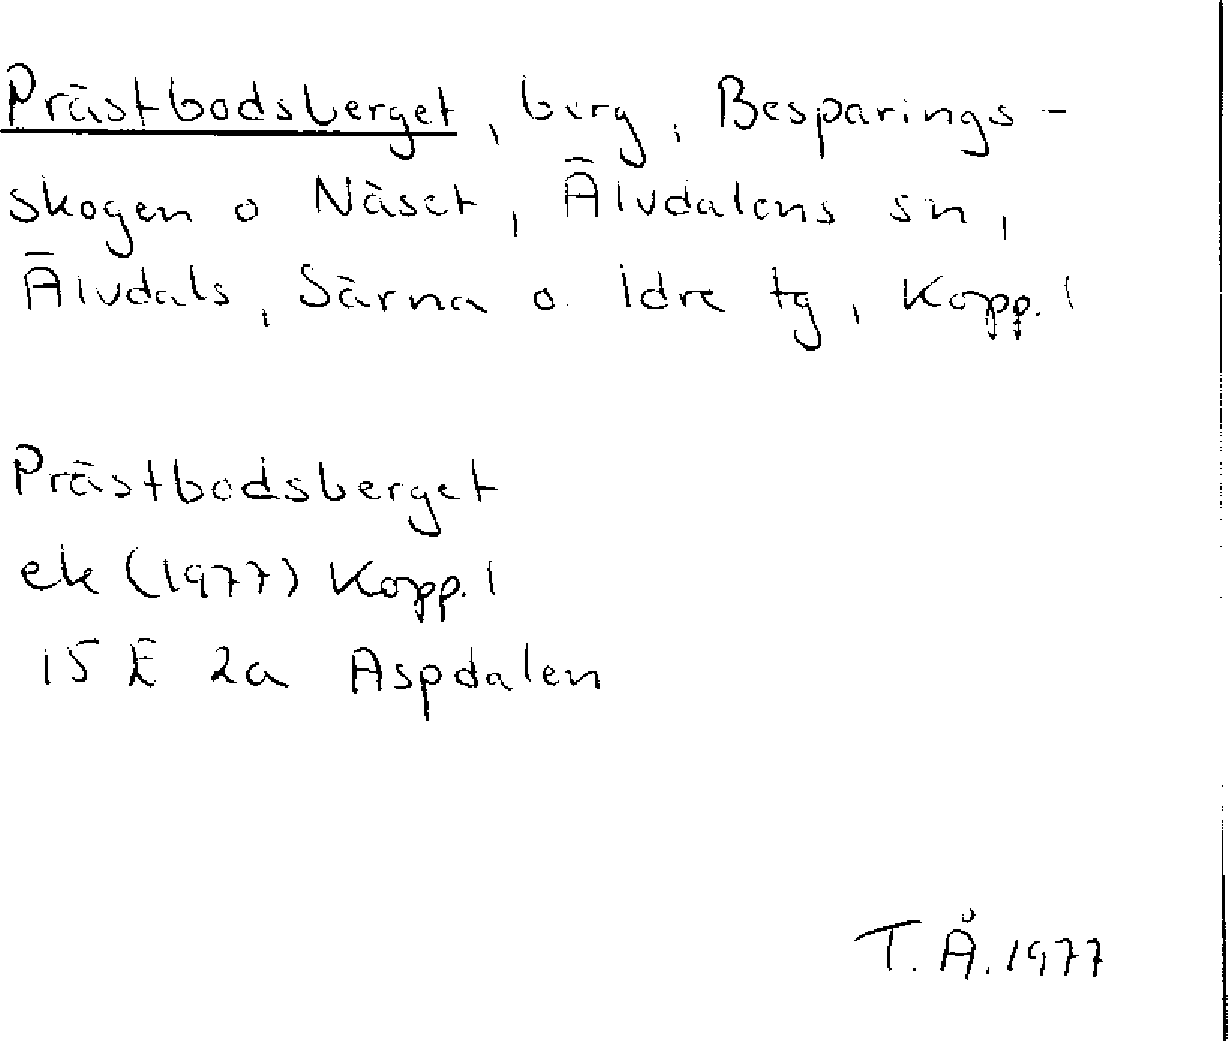 Prästbodsberget, berg, Besparings-
skogen o Näset, Älvdalens sn,
Älvdals, Särna o. Idre tg, Kopp. l
Prästbodsberget
ek (1977) Kopp. l
15 E 2a Aspdalen
T. Å. 1977